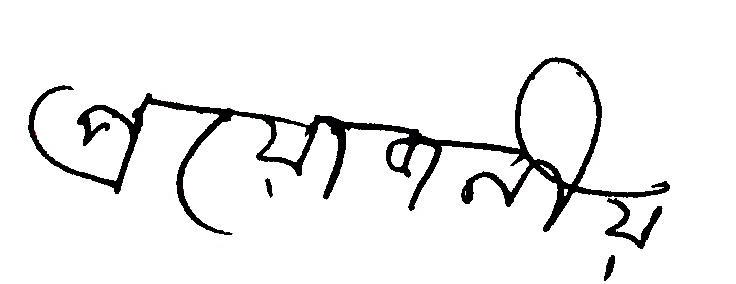 প্রয়োজনীয়